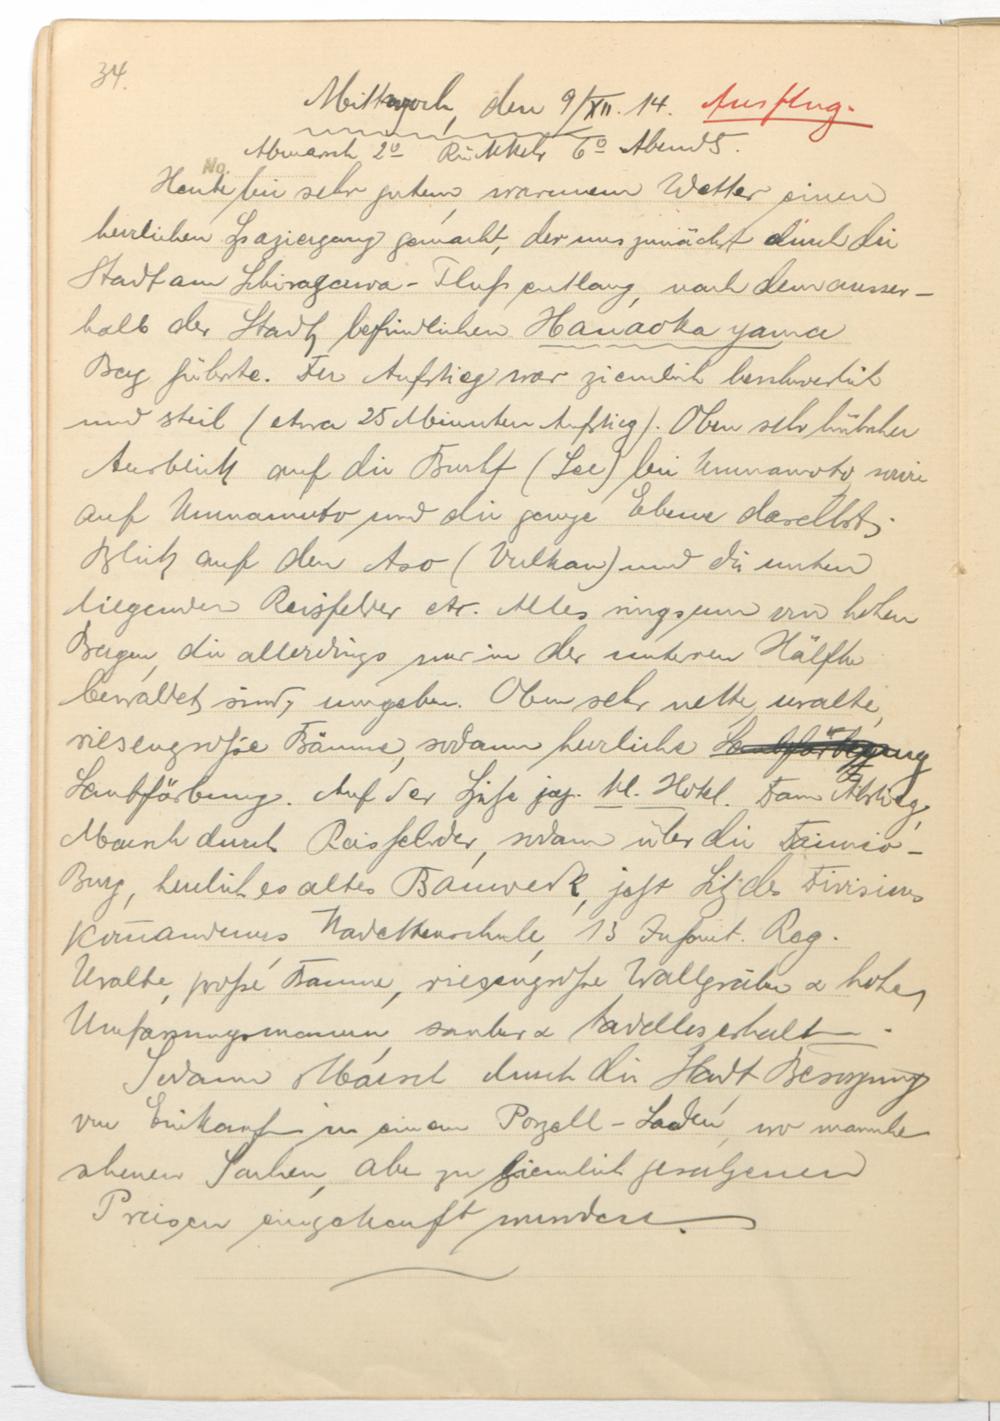 34.
Mittwoch, den 9/XII. 14. Ausflug.
Abmarsch 2º Rückkehr 6º Abends.
No.
Heute bei sehr gutem, warmem Wetter einen
herrlichen Spaziergang gemacht, der uns zunächst durch die
Stadt am Shiragawa-Fluß entlang, nach dem ausser-
halb der Stadt befindlichen Hanaoka yama
Berg führte. Der Aufstieg war ziemlich beschwerlich
und steil (etwa 25 Minuten Aufstieg). Oben sehr hübscher
Ausblick auf die Bucht (See) bei Kumamoto, sowie
auf Kumamoto und die ganze Ebene daselbst;
Blick auf den Aso (Vulkan) und die unten
liegenden Reisfelder etc. Alles ringsum von hohen
Bergen, die allerdings nur in der unteren Hälfte
bewaldet sind, umgeben. Oben sehr nette, uralte,
riesengroße Bäume, sodann herrliche
Laubfärbung. Auf der Spitze jap. Hotel. Dann Abstieg,
Marsch durch Reisfelder, sodann über die Daimio-
Burg, herrliches altes Bauwerk, jetzt Sitz des Divisions
Komandeurs Kadettenschule, 13 Infant. Reg.
Uralte, große Bäume, riesengroße Wallgräben & hohe,
Umfassungsmauern sauber & tadellos erhalt.
Sodann Marsch durch die Stadt Besorgung
von Einkauf in einem Porzell-Laden, wo manche
schönen Sachen, aber zu ziemlich gesalzenen
Preisen eingekauft wurden.